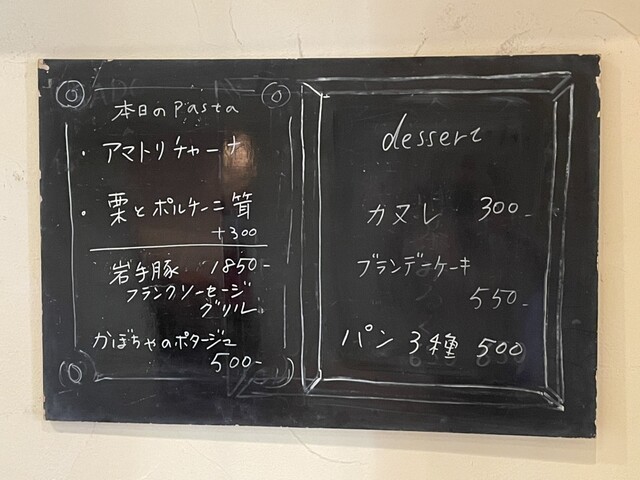 本日のPasta
・アマトリチャーナ
・栗とポルチーニ茸
+300
岩手豚 1850-
フランクソーセージ
グリル
かぼちゃのポタージュ
500-
dessert
カヌレ 300-
ブランデーケーキ
550-
パン 3種 500